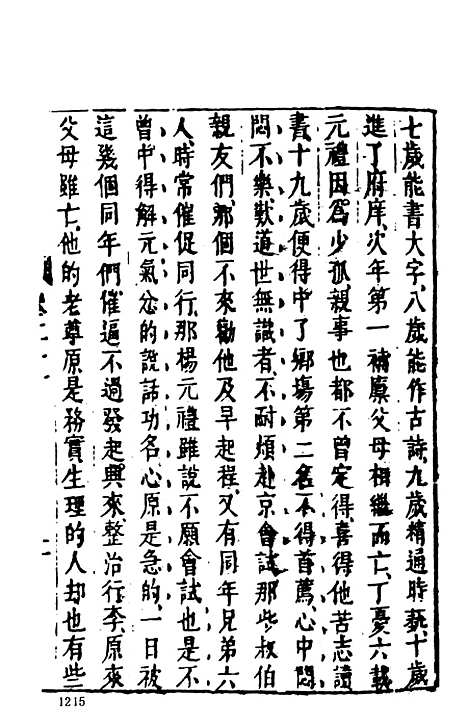 七歲能書大字、八歲能作古詩、九歲精通時藝、十歲
進了府庠、次年第一補廪、父母相繼而亡、丁憂六載、
元禮因爲少孤、親事也都不曾定得、喜得他苦志讀
書、十九歲便得中了鄉塲第二名、不得首薦、心中悶
悶不樂、歎道世無識者、不耐煩赴京會試、那些叔伯
親友們、那個不來勸他及早起程、又有同年兄弟六
人、時常催促同行、那楊元禮雖說不願會試、也是不
曾中得解元、氣忿的說話、功名心原是急的、一日被
這幾個同年們催逼不過、發起興來、整治行李、原來
父母雖亡、他的老尊原是務實生理的人、却也有些
卷二十一
1215